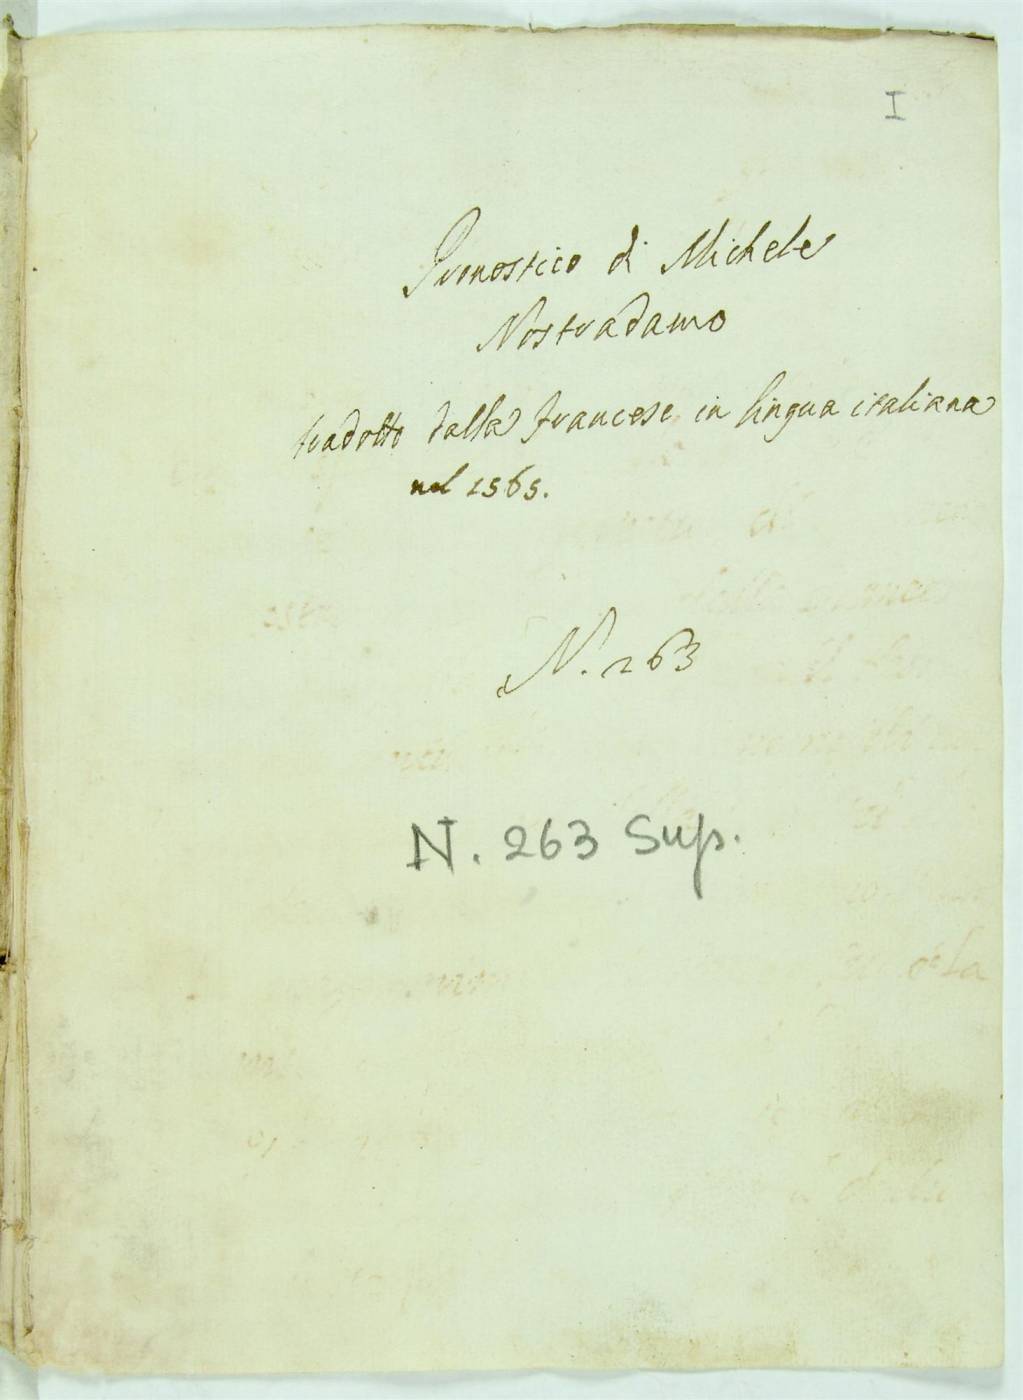 I
Pronostico di Michele
Nostradamo
tradotto dalla francese in lingua italiana
nel 1565.
N. 263
N. 263 Sup.